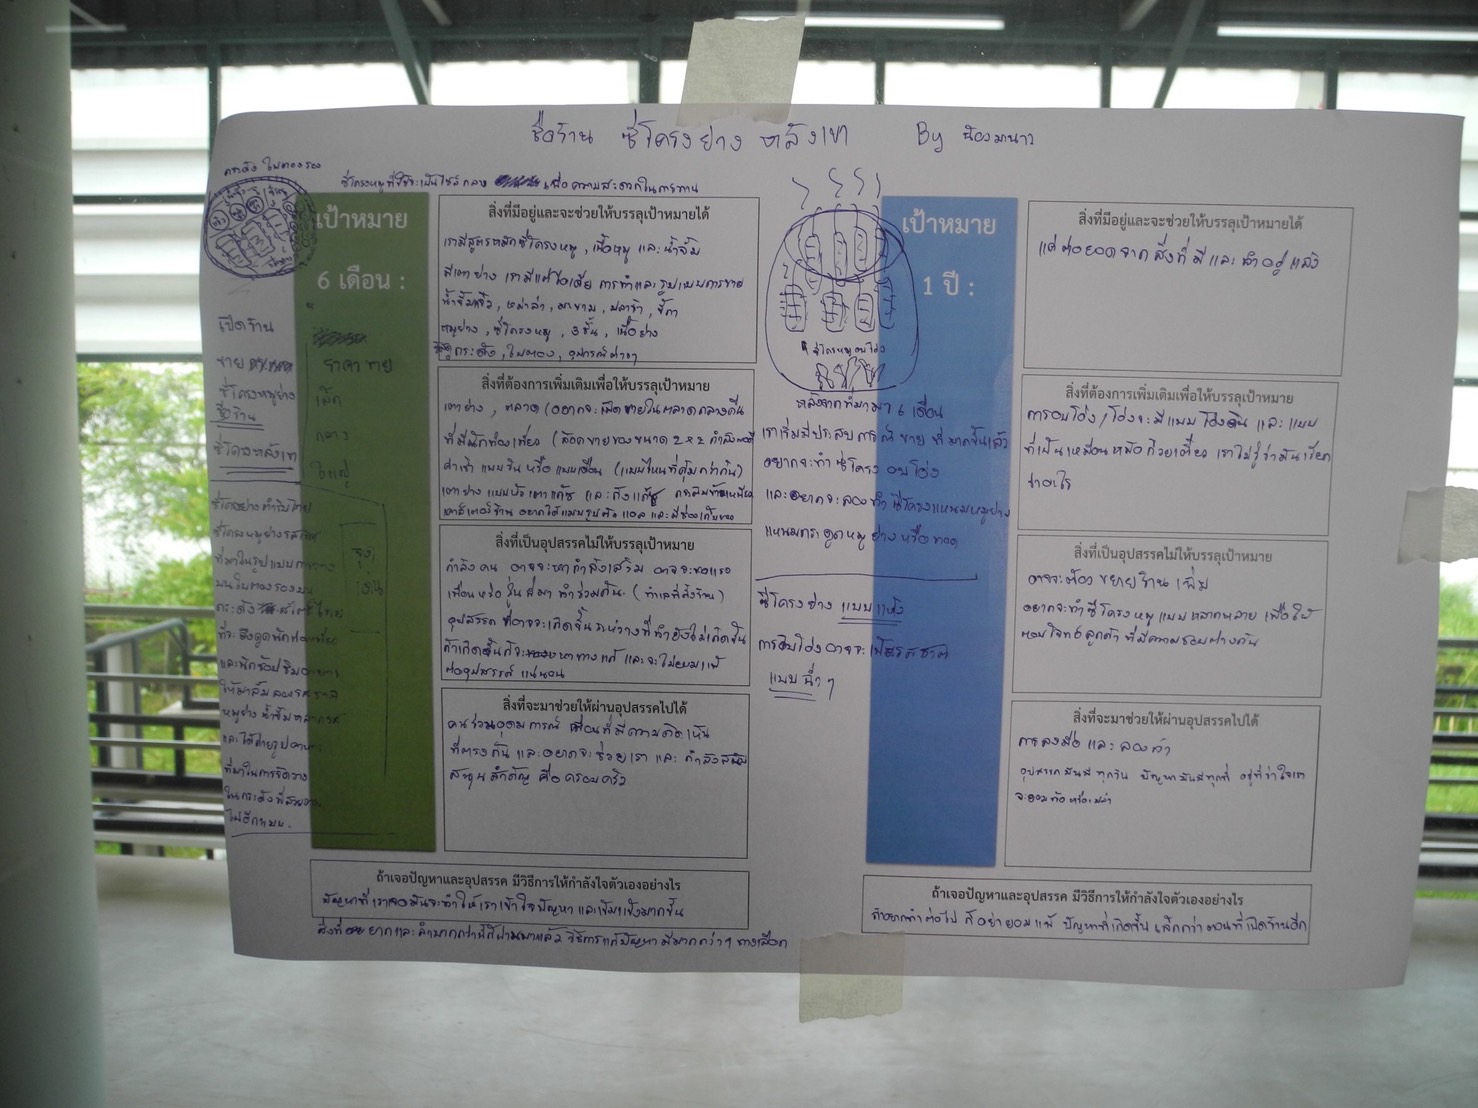 ชื่อร้าน ซี่โครงย่าง หลังเขา By น้องมานาว
ซี่โครงหมูที่ใช้จะเป็นไซส์กลาง เพื่อความสะดวกในการทาน
เป้าหมาย
6 เดือน :
เปิดร้าน
ขาย
ซี่โครงหมูย่าง
ชื่อร้าน
ซี่โครงหลังเขา
ราคา ขาย
เล็ก
กลาง
ใหญ่
ซี่โครงหมูย่างรสเลิศ
ที่มาในรูปแบบการวาง
บนใบตองรองบน
กระด้ง
ที่จะดึงดูดนักท่องเที่ยว
และนักช้อปชิมอาหาร
ให้มาลิ้มลองรสชาติ
หมูย่าง น้ำจิ้มหลากรส
และได้ถ่ายรูปอาหาร
ที่มาในการจัดวาง
ในกระด้งที่สวยงาม
ไม่อีกแบบ.
สิ่งที่มีอยู่และจะช่วยให้บรรลุเป้าหมายได้
เรามีสูตรหมักซี่โครงหมู, เนื้อหมู และ น้ำจิ้ม
มีเตาย่าง เรามีแค่ไอเดีย การทำและรูปแบบการขาย
น้ำจิ้มแจ่ว, หม่าล่า, มะขาม, ปลาร้า,
หมูย่าง, ซี่โครงหมู, 3 ชั้น, เนื้อย่าง
กระด้ง, ใบตอง, อุปกรณ์ต่างๆ
สิ่งที่ต้องการเพิ่มเติมเพื่อให้บรรลุเป้าหมาย
เตาย่าง, ตลาด (อยากจะเปิดขายในตลาดกลางคืน
ที่มีนักท่องเที่ยว (ล็อคขายของขนาด 2x2 กำลังพอดี
ค่าเช่า แบบวัน หรือ แบบเดือน (แบบไหนที่คุ้มกว่ากัน)
เตาย่าง แบบหัวเตาแก๊ซ และ ถังแก๊ซ
เคาร์เตอร์ร้าน อยากได้แบบรูปตัว แอล และ มีช่องเก็บของ
สิ่งที่เป็นอุปสรรคไม่ให้บรรลุเป้าหมาย
กำลังคน อาจจะหากำลังเสริม อาจจะขอแรง
เพื่อนหรือ หุ้นส่วน ทำร่วมกัน (ทำเลที่ตั้งร้าน)
อุปสรรค ที่อาจจะเกิดขึ้น ระหว่างที่ทำยังไม่เกิดขึ้น
ถ้าเกิดขึ้นก็จะหาทางแก้ และจะไม่ยอมแพ้
ต่ออุปสรรค แน่นอน
สิ่งที่จะมาช่วยให้ผ่านอุปสรรคไปได้
คนร่วมอุดมการณ์ เพื่อนที่มีความคิดเห็น
ที่ตรงกัน และอยากจะช่วยเรา และ กำลังสนับ
สนุน สำคัญ คือ ครอบครัว
ถ้าเจอปัญหาและอุปสรรค มีวิธีการให้กำลังใจตัวเองอย่างไร
ปัญหาที่เราเจอมันจะทำให้เราเข้าใจปัญหา และเข้มแข็งมากขึ้น
สิ่งที่ยากและลำบากกว่านี้ก็ผ่านมาแล้ว วิธีการแก้ปัญหา มีมากกว่า 1 ทางเลือก
เป้าหมาย
1 ปี :
ซี่โครงหมูอบโอ่ง
หลังจากที่ผ่านมา 6 เดือน
เราเริ่มมีประสบการณ์ ขาย ที่มากขึ้นแล้ว
อยากจะทำ ซี่โครง อบโอ่ง
และอยากจะลองทำ ซี่โครงแหนมหมูย่าง
แหนมกระดูกหมู ย่างหรือทอด
ซี่โครงย่าง แบบแห้ง
การอบโอ่งอาจจะเป็นรสชาติ
แบบฉ่ำๆ
สิ่งที่มีอยู่และจะช่วยให้บรรลุเป้าหมายได้
แค่ต่อยอดจากสิ่งที่มี และ ทำอยู่แล้ว
สิ่งที่ต้องการเพิ่มเติมเพื่อให้บรรลุเป้าหมาย
การอบโอ่ง/โอ่งจะมีแบบโอ่งดิน และ แบบ
ที่เป็นเหมือนหม้อก๋วยเตี๋ยว เราไม่รู้ว่ามันเรียก
ว่าอะไร
สิ่งที่เป็นอุปสรรคไม่ให้บรรลุเป้าหมาย
อาจจะต้อง ขยายร้าน เพิ่ม
อยากจะทำซี่โครงหมูแบบหลากหลาย เพื่อให้
ตอบโจทย์ลูกค้า ที่มีความชอบต่างกัน
สิ่งที่จะมาช่วยให้ผ่านอุปสรรคไปได้
การลงมือ และ ลองทำ
อุปสรรคมันมีทุกวัน ปัญหามันมีทุกที่ อยู่ที่ว่าใจเรา
จะยอมท้อหรือเปล่า
ถ้าเจอปัญหาและอุปสรรค มีวิธีการให้กำลังใจตัวเองอย่างไร
ถ้าอยากทำต่อไป ก็อย่ายอมแพ้ ปัญหาที่เกิดขึ้น เล็กกว่าตอนที่เปิดร้านอีก